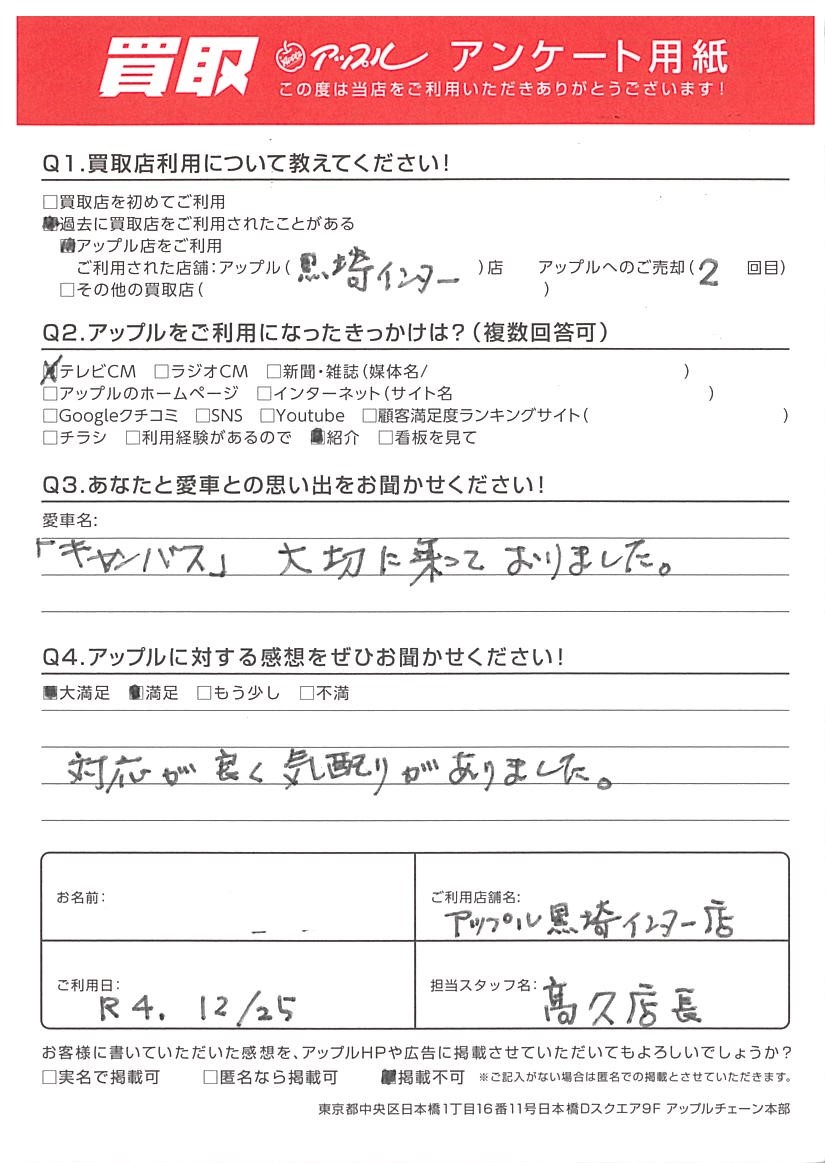 買取 アップル アンケート用紙
この度は当店をご利用いただきありがとうございます！
Q1.買取店利用について教えてください！
□買取店を初めてご利用
■過去に買取店をご利用されたことがある
■アップル店をご利用
ご利用された店舗：アップル（黒埼インター）店 アップルへのご売却（2 回目）
□その他の買取店（ ）
Q2.アップルをご利用になったきっかけは？（複数回答可）
☒テレビCM □ラジオCM □新聞・雑誌（媒体名/ ）
□アップルのホームページ □インターネット（サイト名 ）
□Googleクチコミ □SNS □Youtube □顧客満足度ランキングサイト（ ）
□チラシ □利用経験があるので ■紹介 □看板を見て
Q3.あなたと愛車との思い出をお聞かせください！
愛車名：
「キャンバス」 大切に乗って おりました。
Q4.アップルに対する感想をぜひお聞かせください！
■大満足 ■満足 □もう少し □不満
対応が 良く 気配りが ありました。
お名前：
ご利用店舗名：
アップル黒埼インター店
ご利用日：
R4. 12/25
担当スタッフ名：
髙久店長
お客様に書いていただいた感想を、アップルHPや広告に掲載させていただいてもよろしいでしょうか？
□実名で掲載可 □匿名なら掲載可 ■掲載不可 ※ご記入がない場合は匿名での掲載とさせていただきます。
東京都中央区日本橋1丁目16番11号日本橋Dスクエア9F アップルチェーン本部